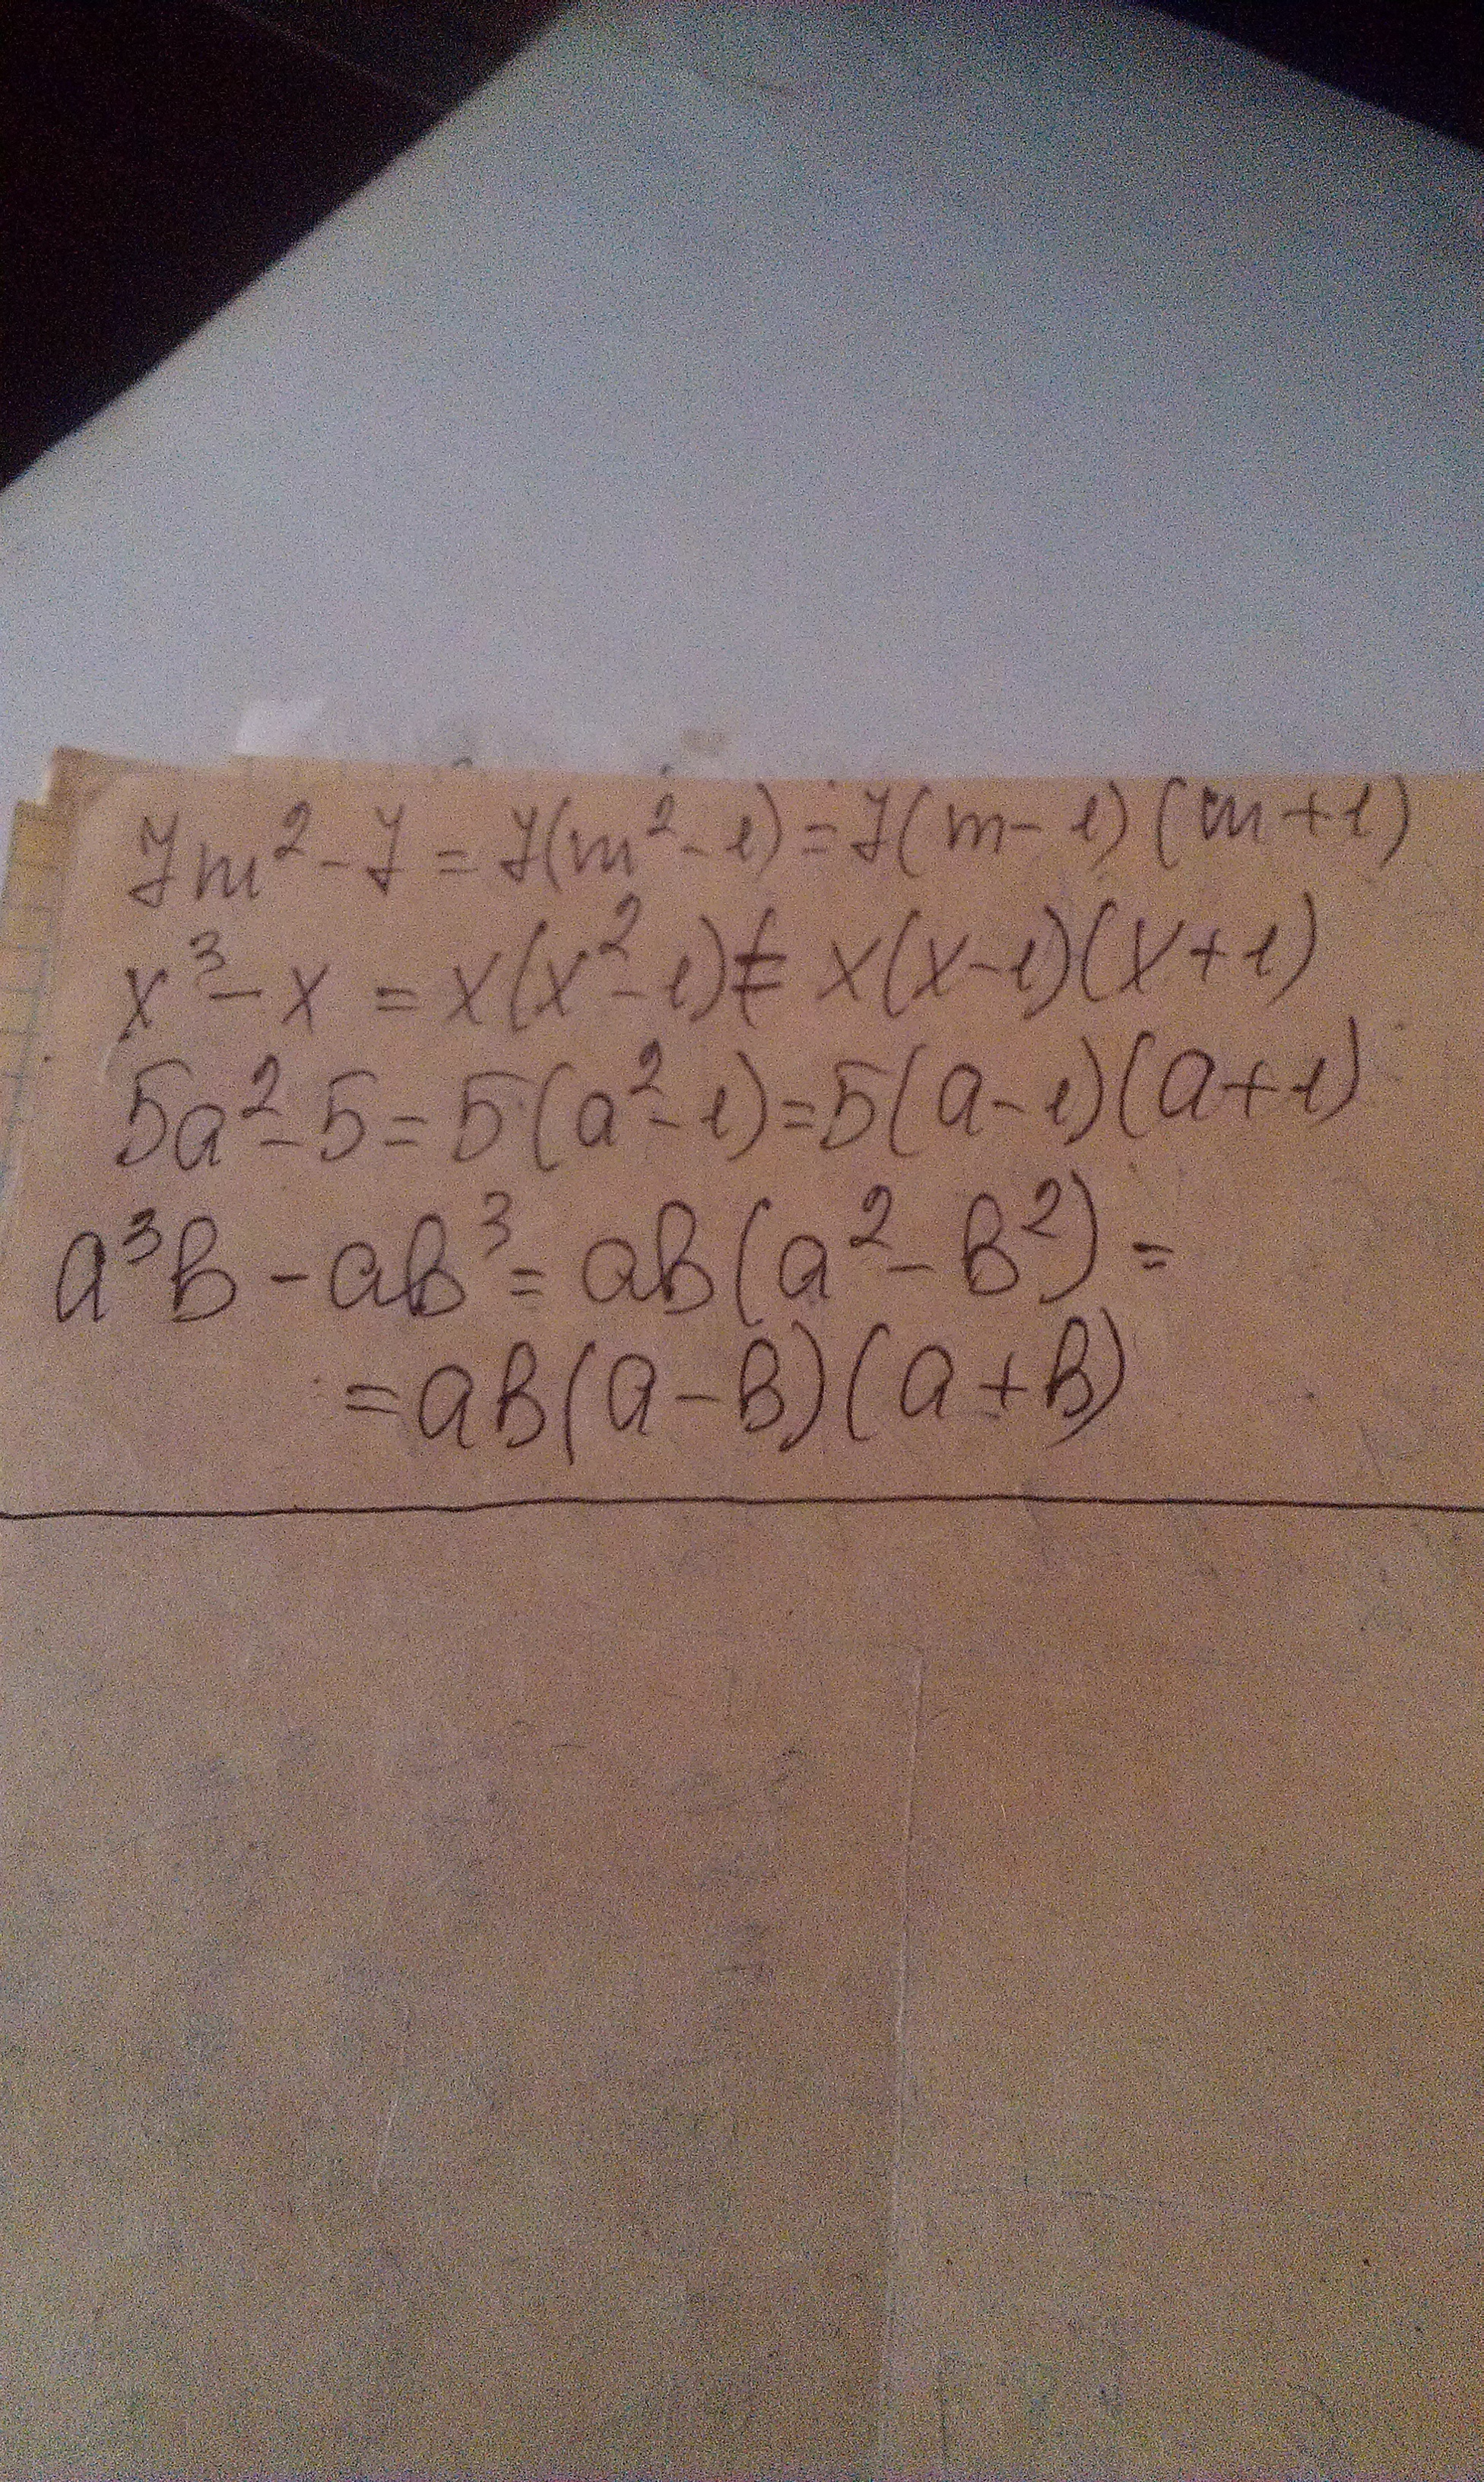 7m² - 7 = 7(m² - 1) = 7(m - 1)(m + 1)
x³ - x = x(x² - 1) = x(x - 1)(x + 1)
5a² - 5 = 5(a² - 1) = 5(a - 1)(a + 1)
a³b - ab³ = ab(a² - b²) =
= ab(a - b)(a + b)